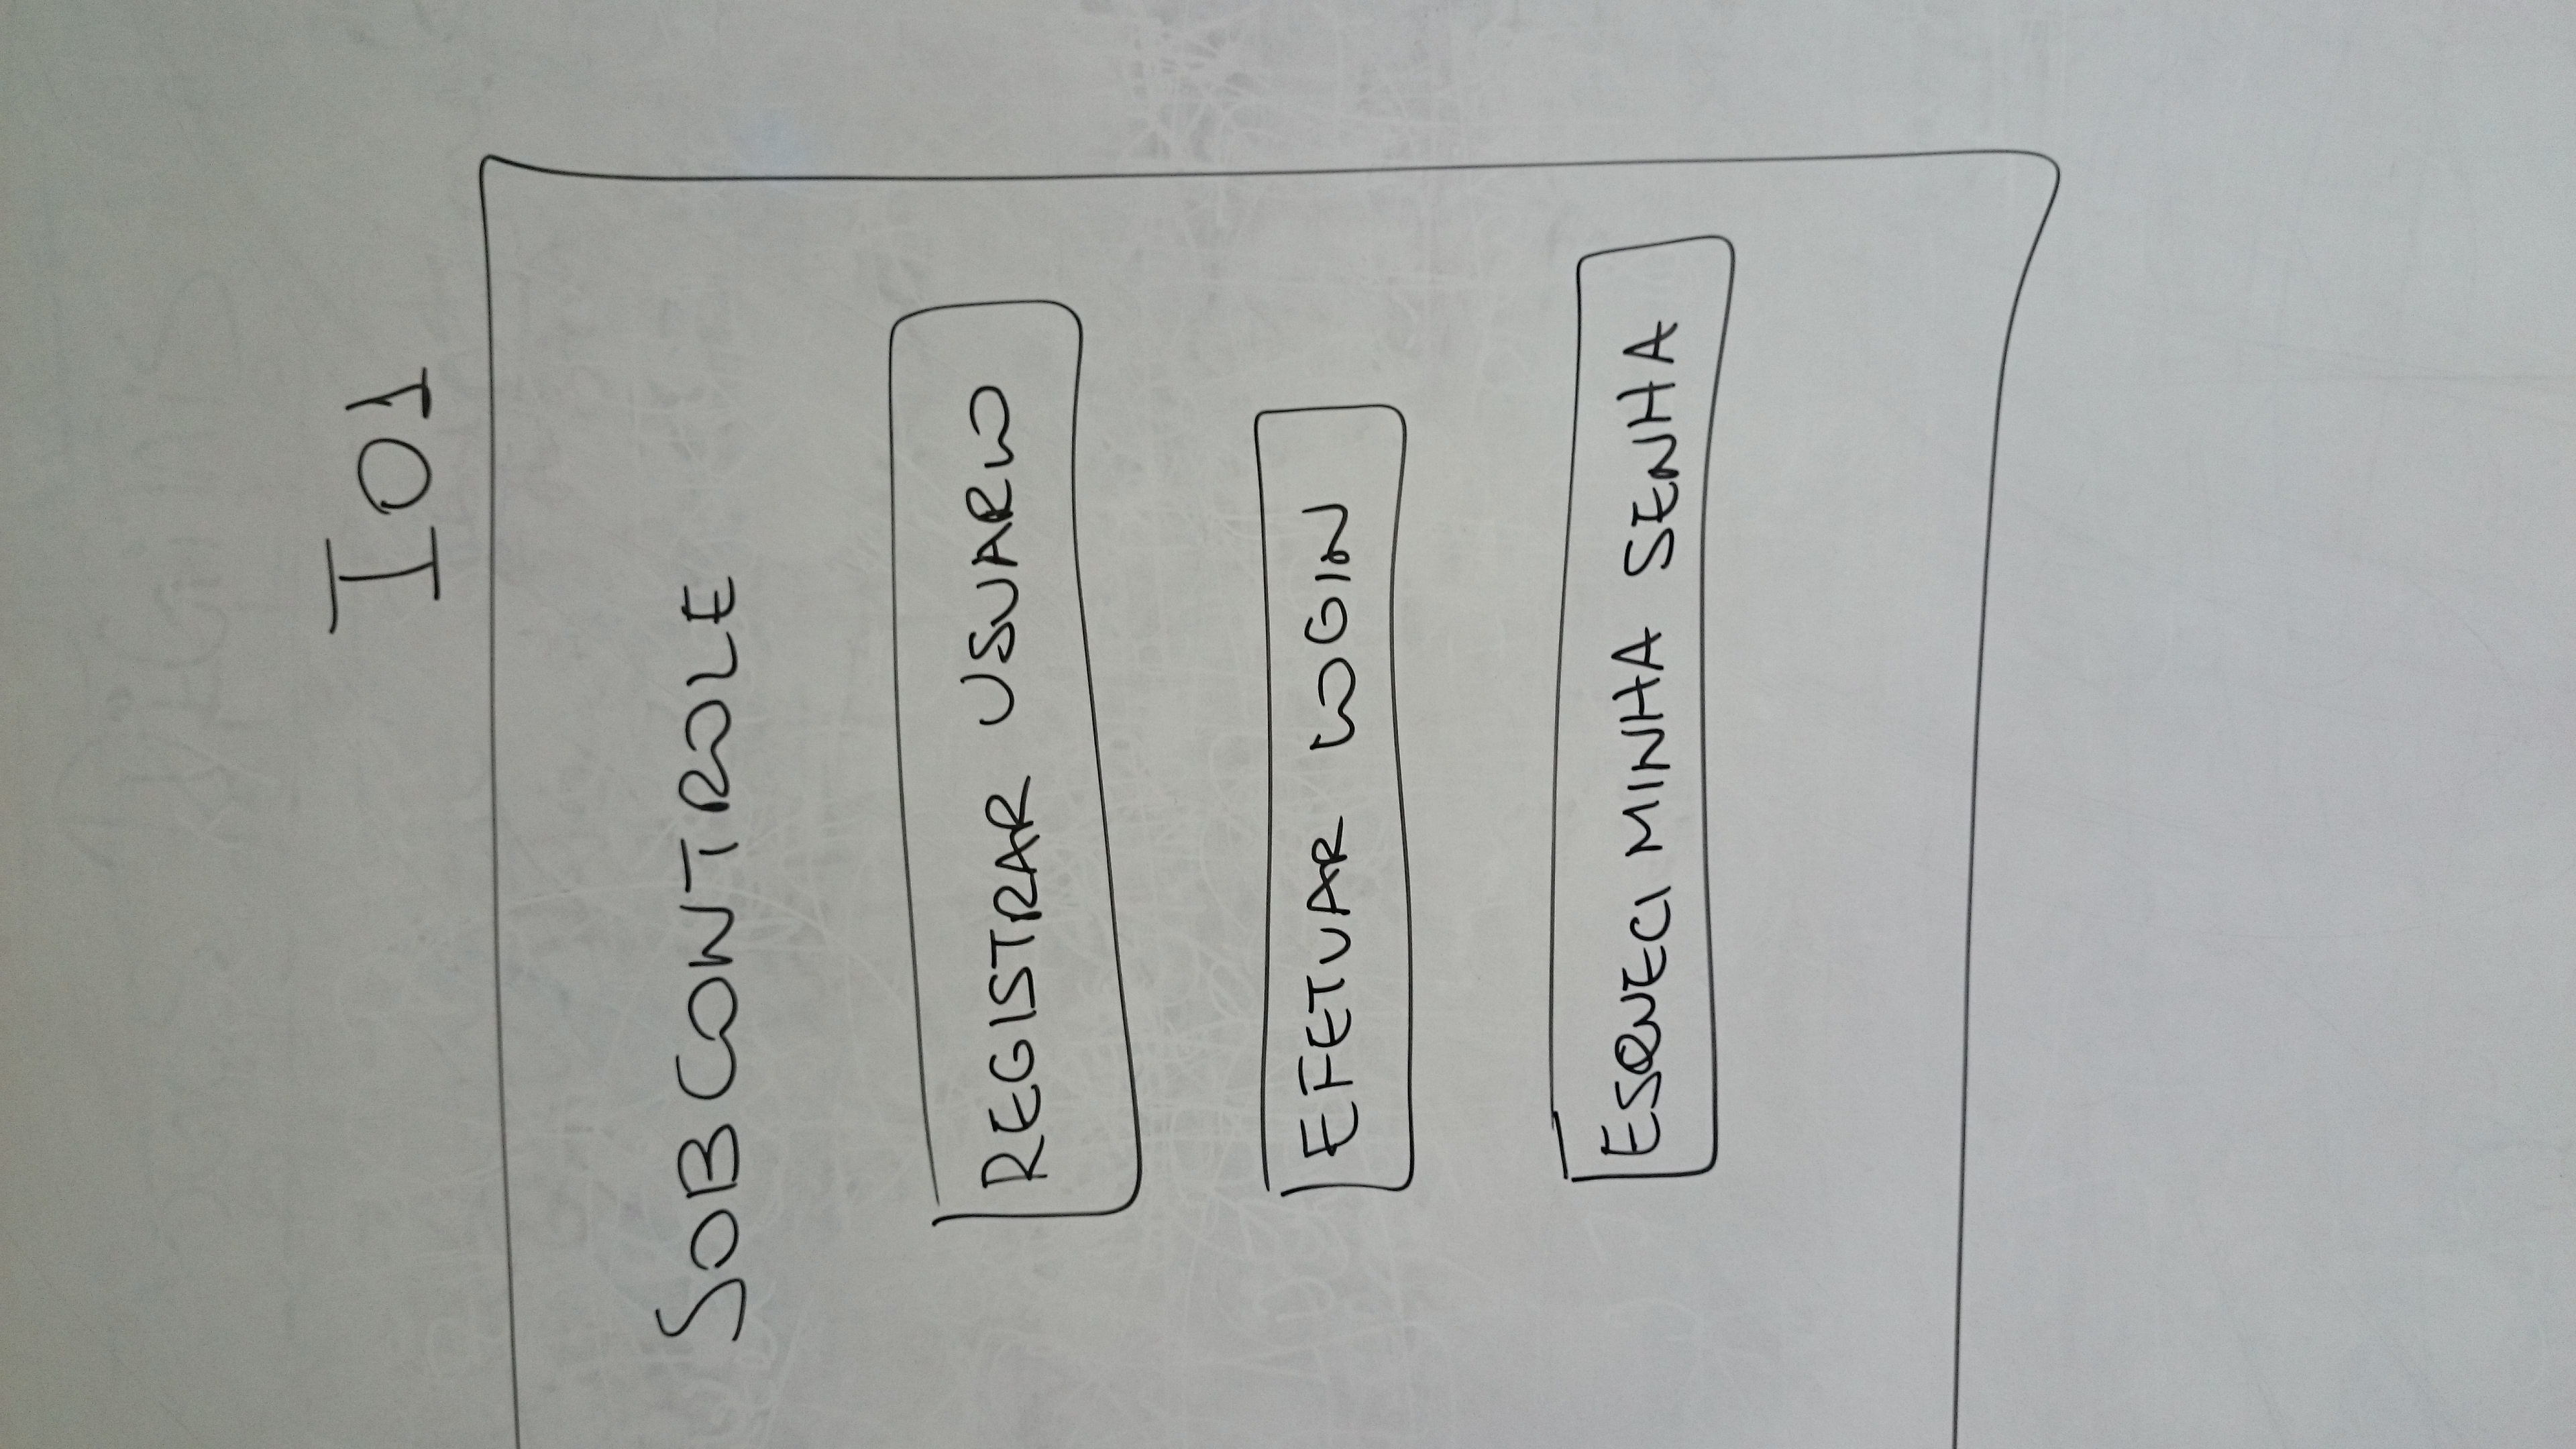 I01
SOBCONTROLE
REGISTRAR USUARIO
EFETUAR LOGIN
ESQUECI MINHA SENHA